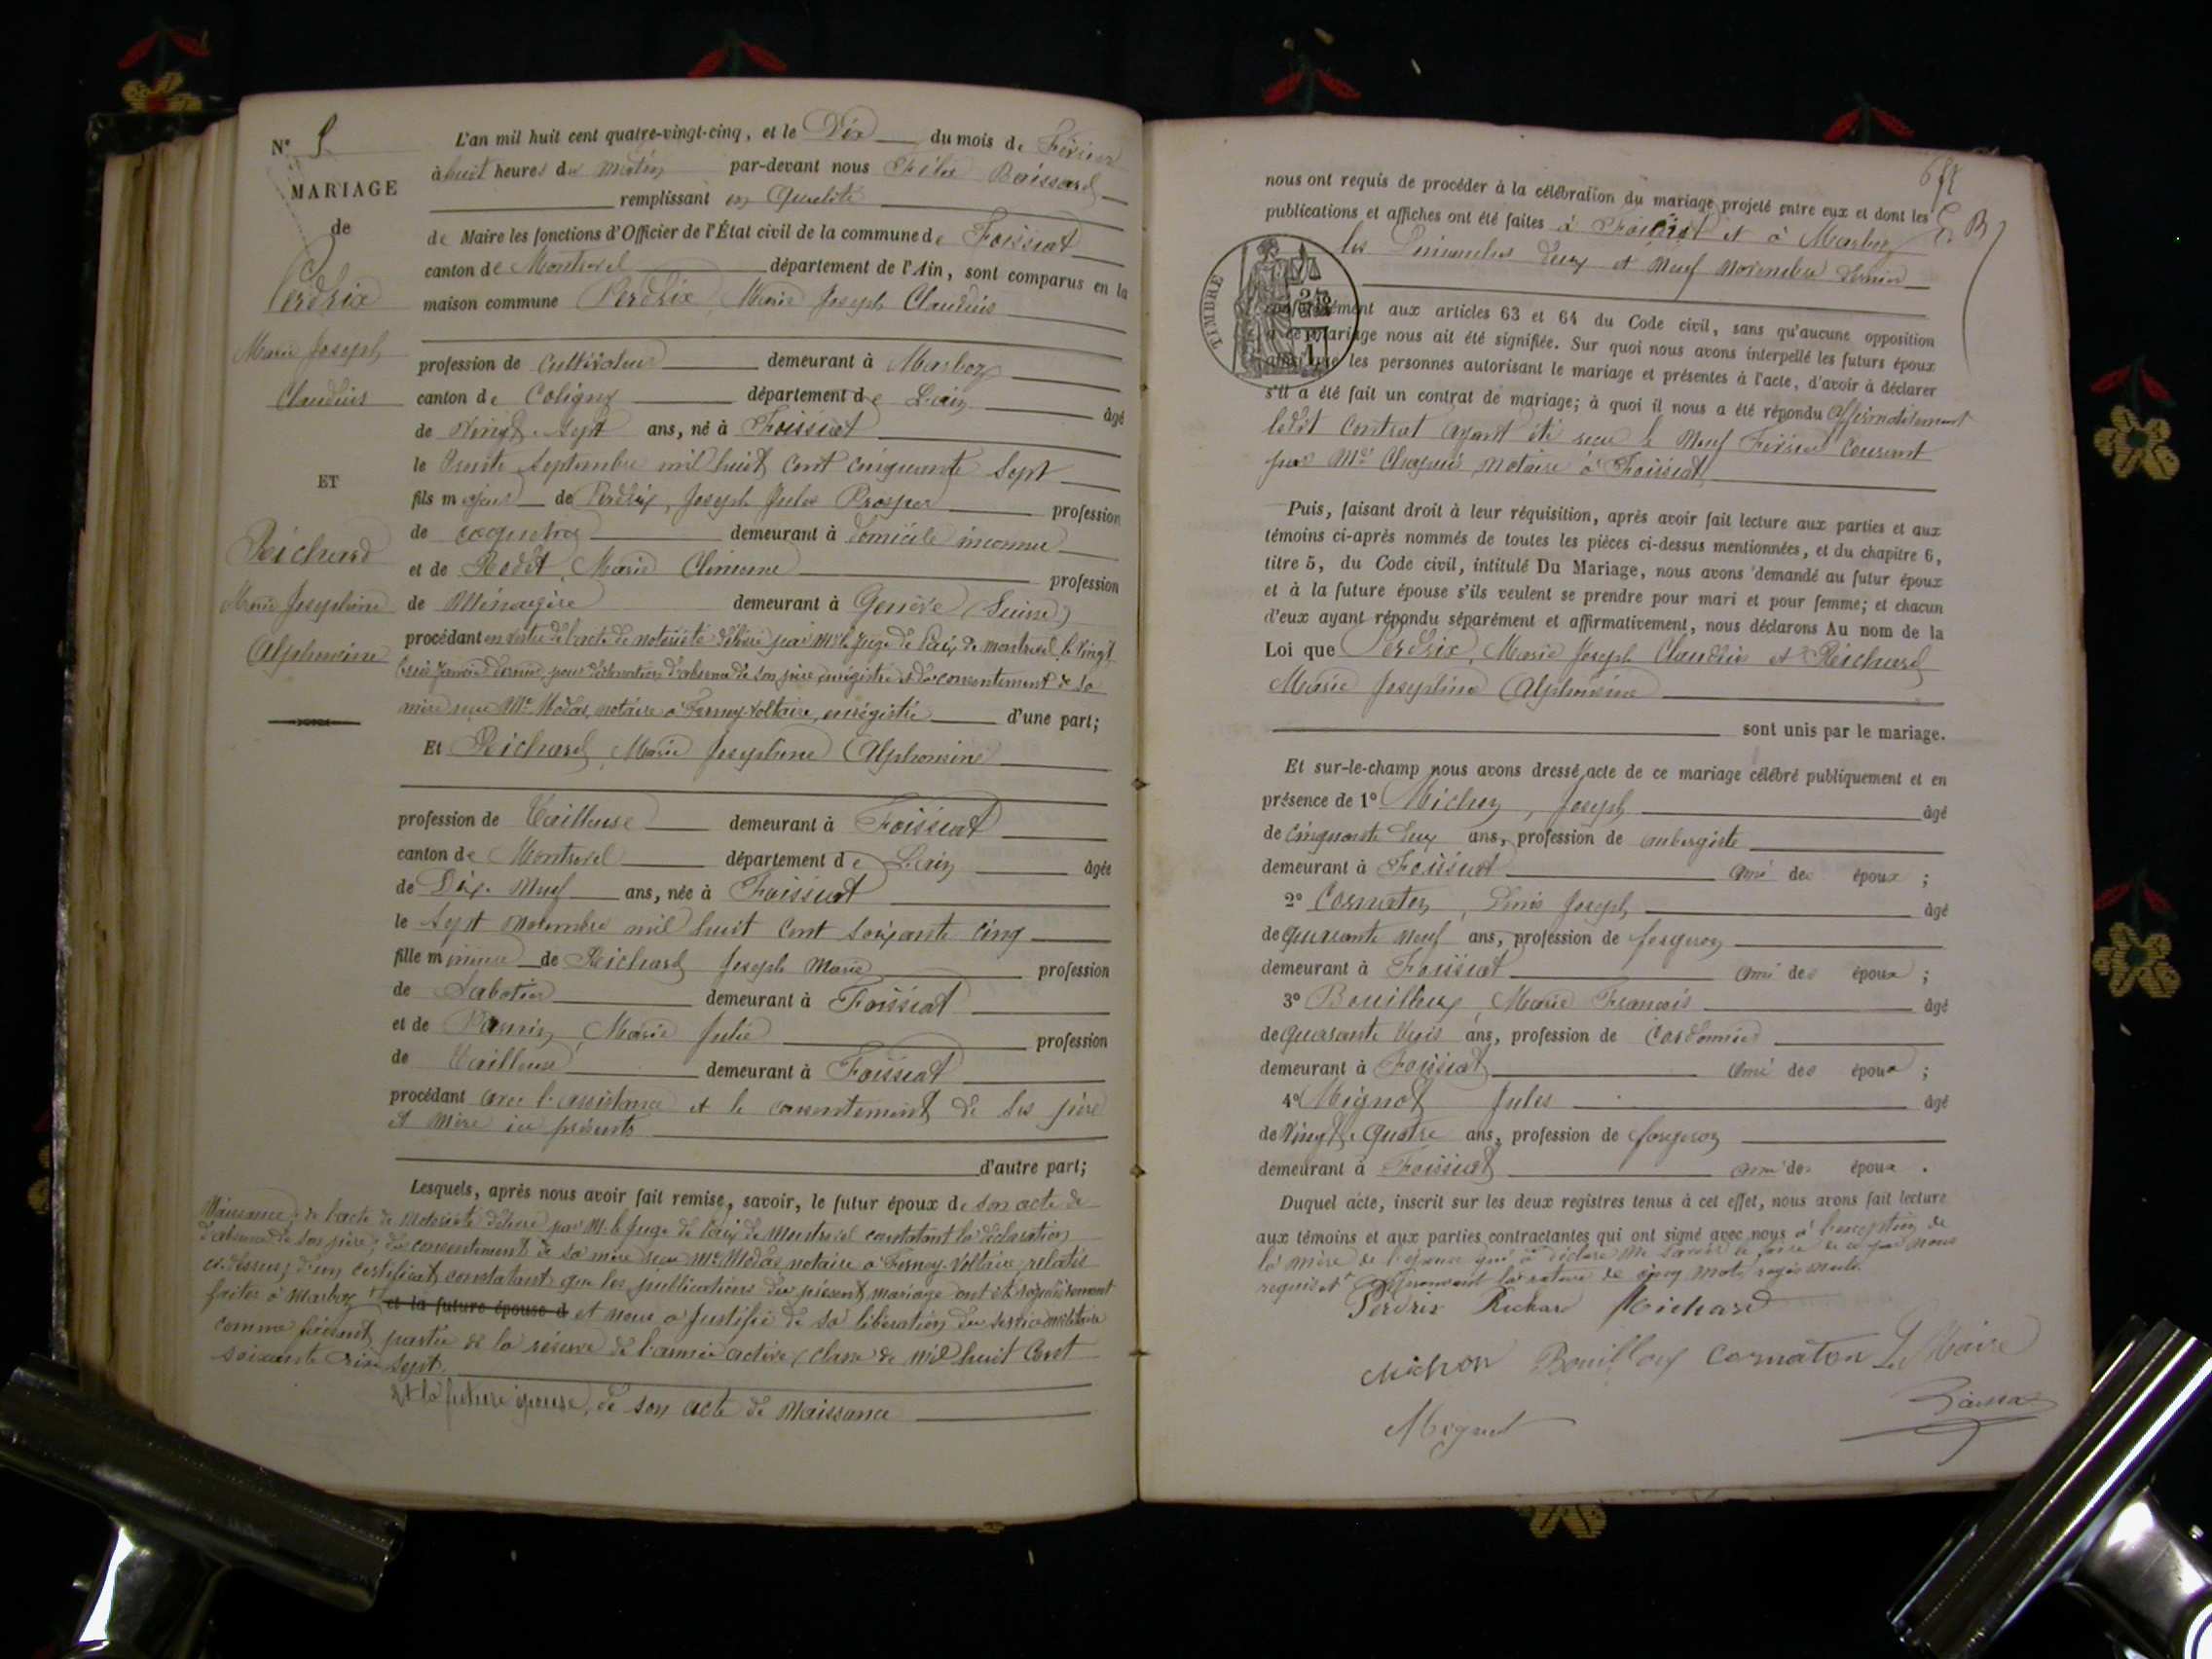 N° 9
MARIAGE
de
Perdrix
Marie Joseph
Claudius
ET
Richard
Marie Joséphine
Alphonsine
L'an mil huit cent quatre-vingt-cinq, et le Dix du mois de Février
à huit heures du matin par-devant nous Félix Baissard
remplissant en qualité
de Maire les fonctions d'Officier de l'État civil de la commune de Foissiat
canton de Montrevel département de l'Ain, sont comparus en la
maison commune Perdrix, Marie Joseph Claudius
profession de cultivateur demeurant à Marboz
canton de Coligny département de L'ain âgé
de vingt-sept ans, né à Foissiat
le trente Septembre mil huit cent cinquante Sept
fils majeur de Perdrix, Joseph Jules Prosper profession
de demeurant à domicile inconnu
et de Rodet, Marie Climène profession
de Ménagère demeurant à Genève (Suisse)
procédant en vertu de l'acte de notoriété délivré par Mr le Juge de Paix de montrevel le vingt
Janvier dernier, pour déclaration d'absence de son père, enregistré et du consentement de sa
mère reçu Me Modas, notaire à Ferney-Voltaire, enregistré d'une part;
Et Richard, Marie Joséphine Alphonsine
profession de Tailleuse demeurant à Foissiat
canton de Montrevel département de L'ain âgée
de Dix-neuf ans, née à Foissiat
le Sept Novembre mil huit cent soixante cinq
fille mineure de Richard Joseph Marie profession
de Sabotier demeurant à Foissiat
et de Marie Julie profession
de Tailleuse demeurant à Foissiat
procédant avec l'assistance et le consentement de ses père
et mère ici présents
d'autre part;
Lesquels, après nous avoir fait remise, savoir, le futur époux de son acte de
Naissance; de l'acte de Notoriété délivré par Mr le Juge de Paix de Montrevel constatant la déclaration
d'absence de son père; du consentement de sa mère reçu Me Modas notaire à Ferney-Voltaire, relatés
ci-dessus; d'un certificat constatant que les publications du présent mariage ont été régulièrement
faites à Marboz et la future épouse d et nous a justifié de sa libération du service militaire
comme faisant partie de la réserve de l'armée active (classe de mil huit Cent
soixante dix-sept.
Et la future épouse, de son acte de Naissance
nous ont requis de procéder à la célébration du mariage projeté entre eux et dont les
publications et affiches ont été faites à Foissiat et à Marboz
les Dimanches deux et Neuf Novembre dernier
TIMBRE
conformément aux articles 63 et 64 du Code civil, sans qu'aucune opposition
à ce mariage nous ait été signifiée. Sur quoi nous avons interpellé les futurs époux
ainsi que les personnes autorisant le mariage et présentes à l'acte, d'avoir à déclarer
s'il a été fait un contrat de mariage; à quoi il nous a été répondu affirmativement
ledit contrat ayant été reçu le Neuf Février courant
par Me notaire à Foissiat
Puis, faisant droit à leur réquisition, après avoir fait lecture aux parties et aux
témoins ci-après nommés de toutes les pièces ci-dessus mentionnées, et du chapitre 6,
titre 5, du Code civil, intitulé Du Mariage, nous avons demandé au futur époux
et à la future épouse s'ils veulent se prendre pour mari et pour femme; et chacun
d'eux ayant répondu séparément et affirmativement, nous déclarons Au nom de la
Loi que Perdrix, Marie Joseph Claudius et Richard
Marie Joséphine Alphonsine
sont unis par le mariage.
Et sur-le-champ nous avons dressé acte de ce mariage célébré publiquement et en
présence de 1° Michon, Joseph âgé
de cinquante deux ans, profession de aubergiste
demeurant à Foissiat ami des époux ;
2° Cornaton, Joseph âgé
de quarante neuf ans, profession de forgeron
demeurant à Foissiat ami des époux ;
3° Bouilloux, Marie François âgé
de quarante trois ans, profession de cordonnier
demeurant à Foissiat ami des époux ;
4° Mignot Jules âgé
de vingt-quatre ans, profession de forgeron
demeurant à Foissiat ami des époux .
Duquel acte, inscrit sur les deux registres tenus à cet effet, nous avons fait lecture
aux témoins et aux parties contractantes qui ont signé avec nous à l'exception de
la mère de l'époux qui a déclaré ne savoir le faire de ce par nous
requise. Approuvant la rature de cinq mots rayés nuls.
Perdrix Richard Richard
Michon Bouilloux Cornaton Le Maire
Mignot